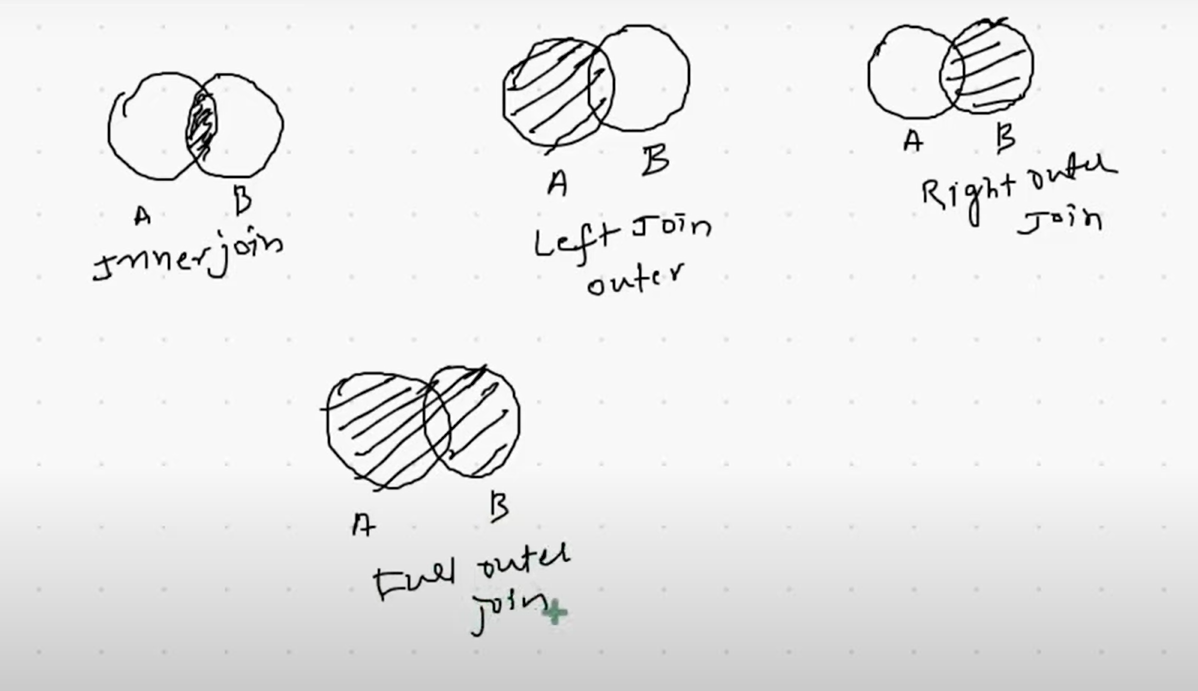 A B
Inner join
A B
Left Join
outer
A B
Right outer
Join
A B
Full outer
join